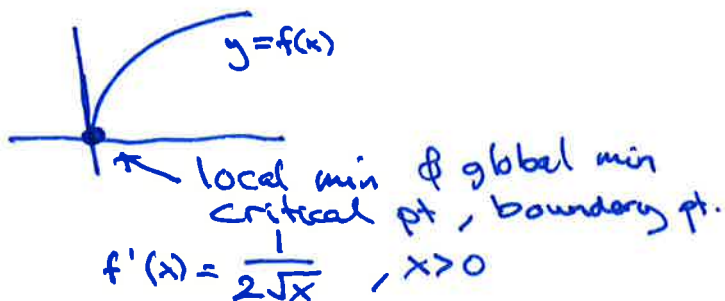 y=f(x)
local min & global min
critical pt, boundary pt.
f'(x) = 1/(2√x) , x>0